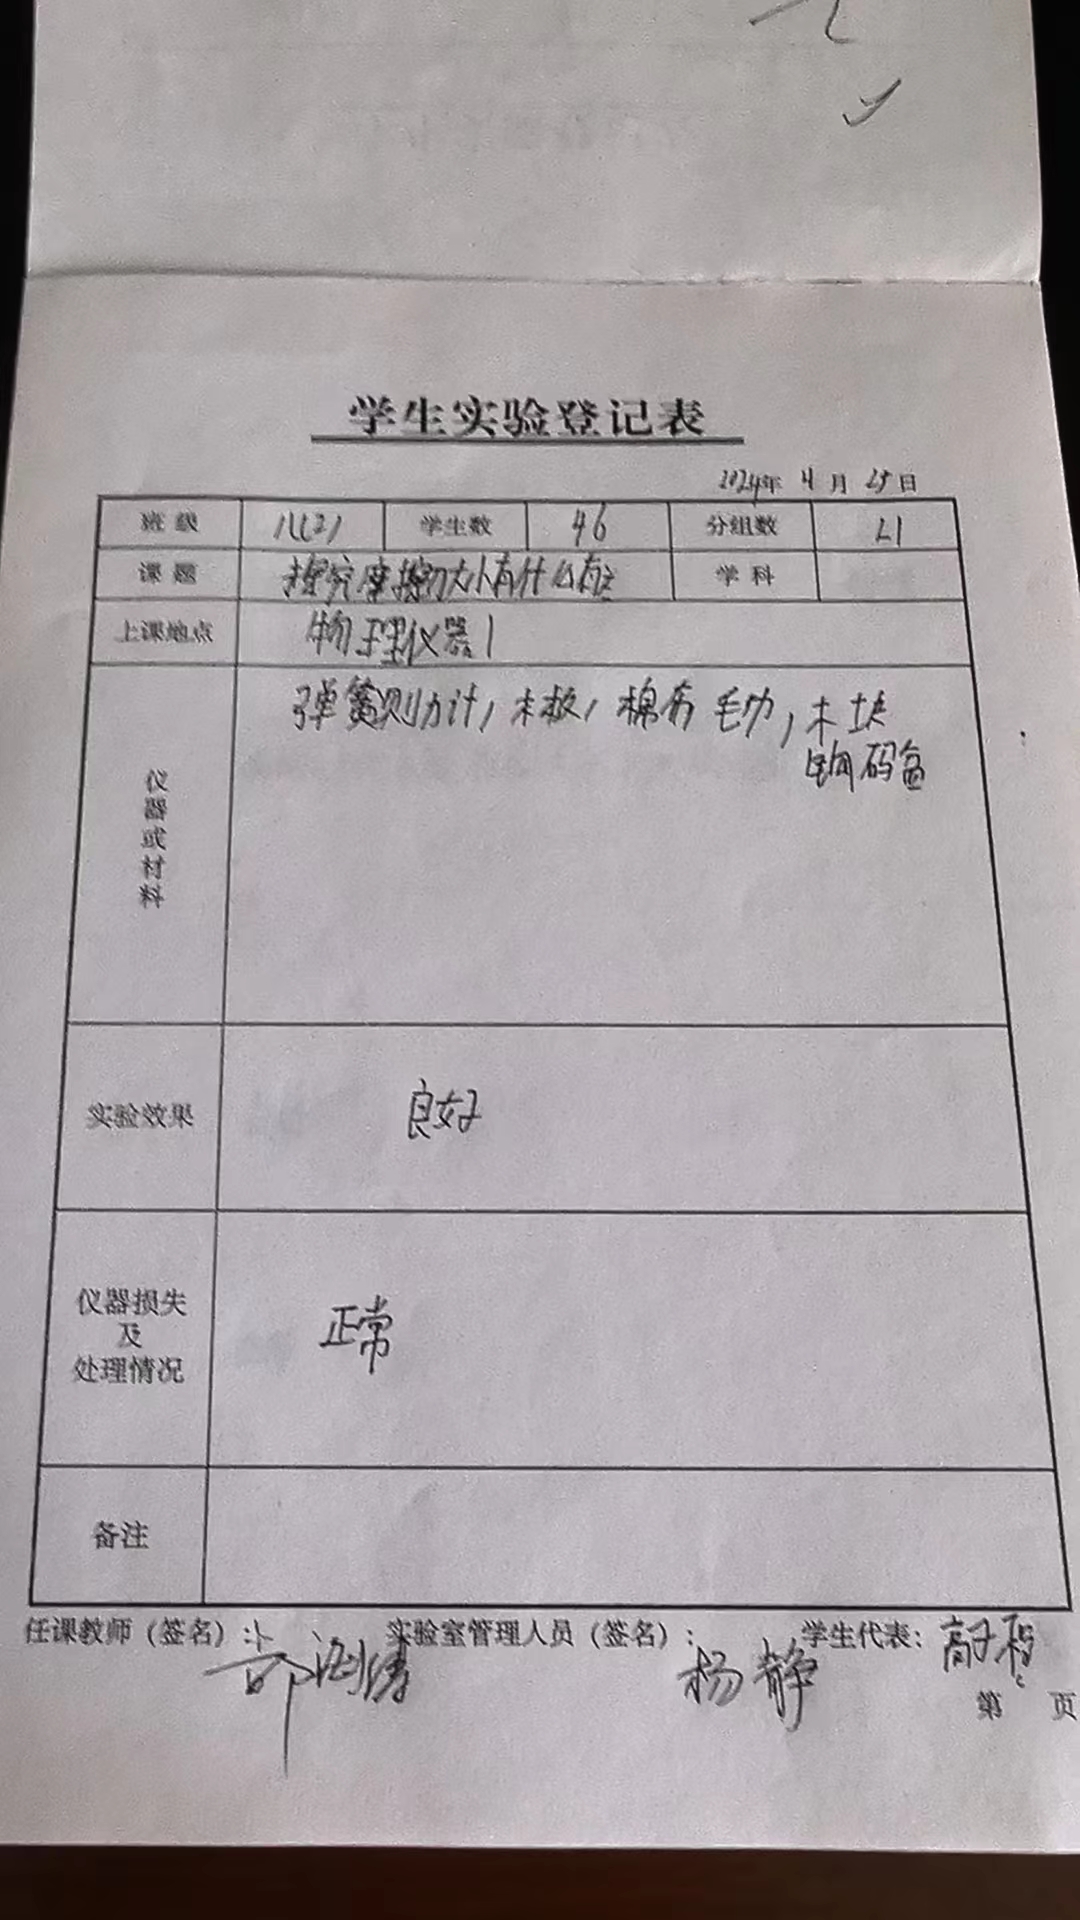 学生实验登记表
2024年 4月 25日
班级 八(2) 学生数 46 分组数
课题 探究摩擦力大小有什么有关 学科
上课地点 物理仪器1
仪器或材料 弹簧测力计, 木板, 棉布 毛巾, 木块
钩码盒
实验效果 良好
仪器损失
及
处理情况 正常
备注
任课教师(签名): 实验室管理人员(签名): 学生代表:
杨静
第 页